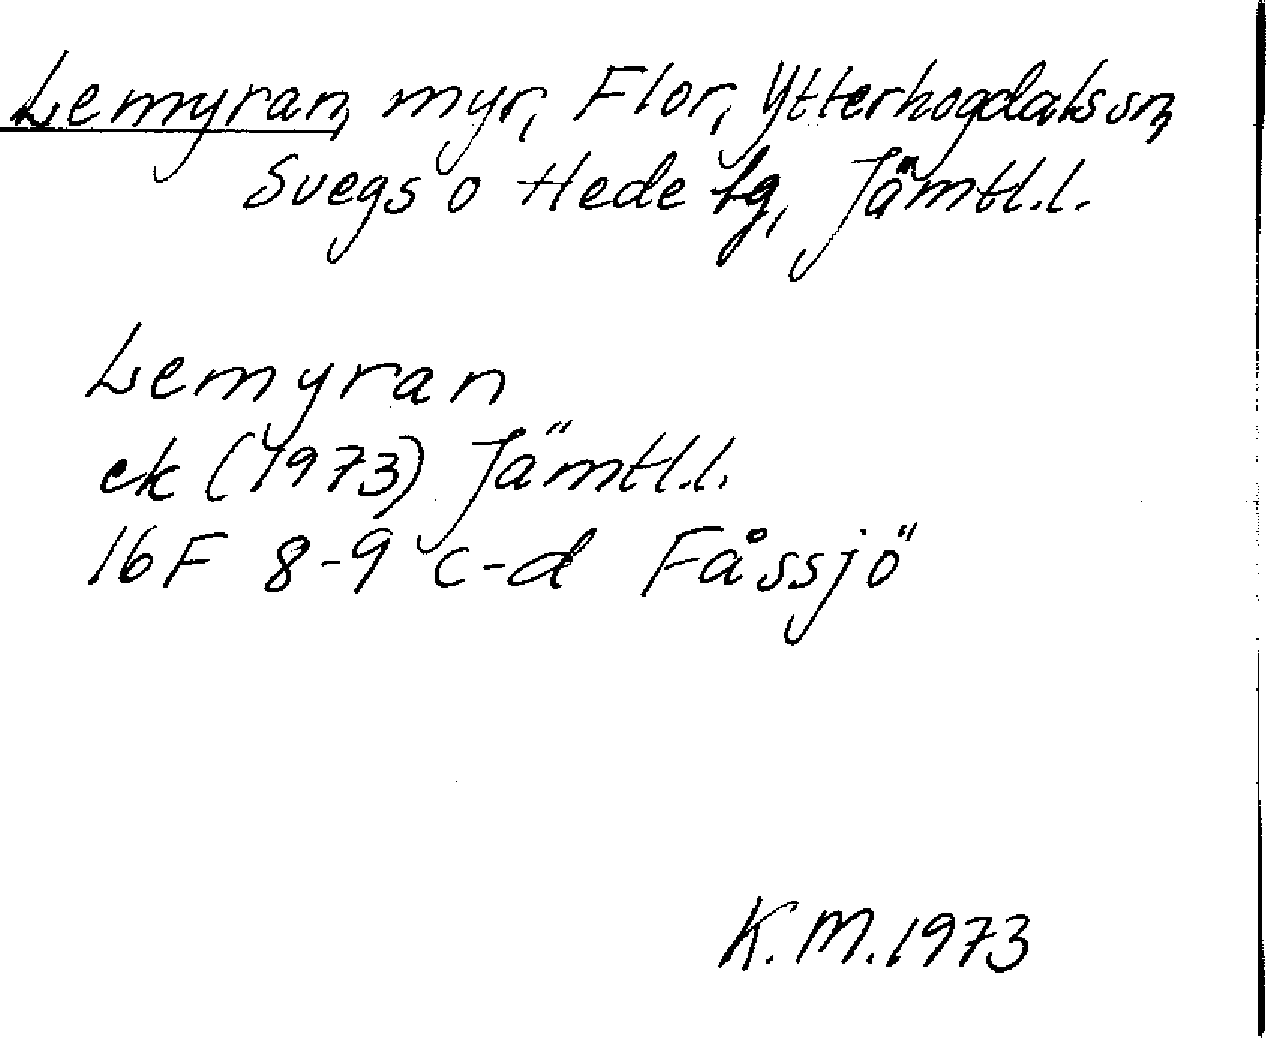 Lemyran, myr, Flor, Ytterhogdals sn,
Svegs o Hede tg, Jämtl.l.
Lemyran
ek (1973) Jämtl.l.
16F 8-9 c-d Fåssjö
K.M.1973